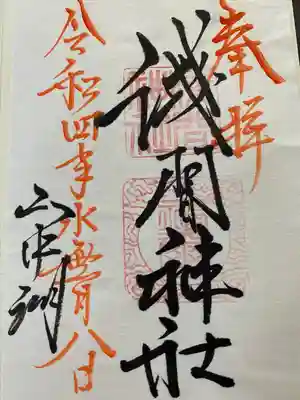 奉拝
淺間神社
令和四年水無月八日
山中湖